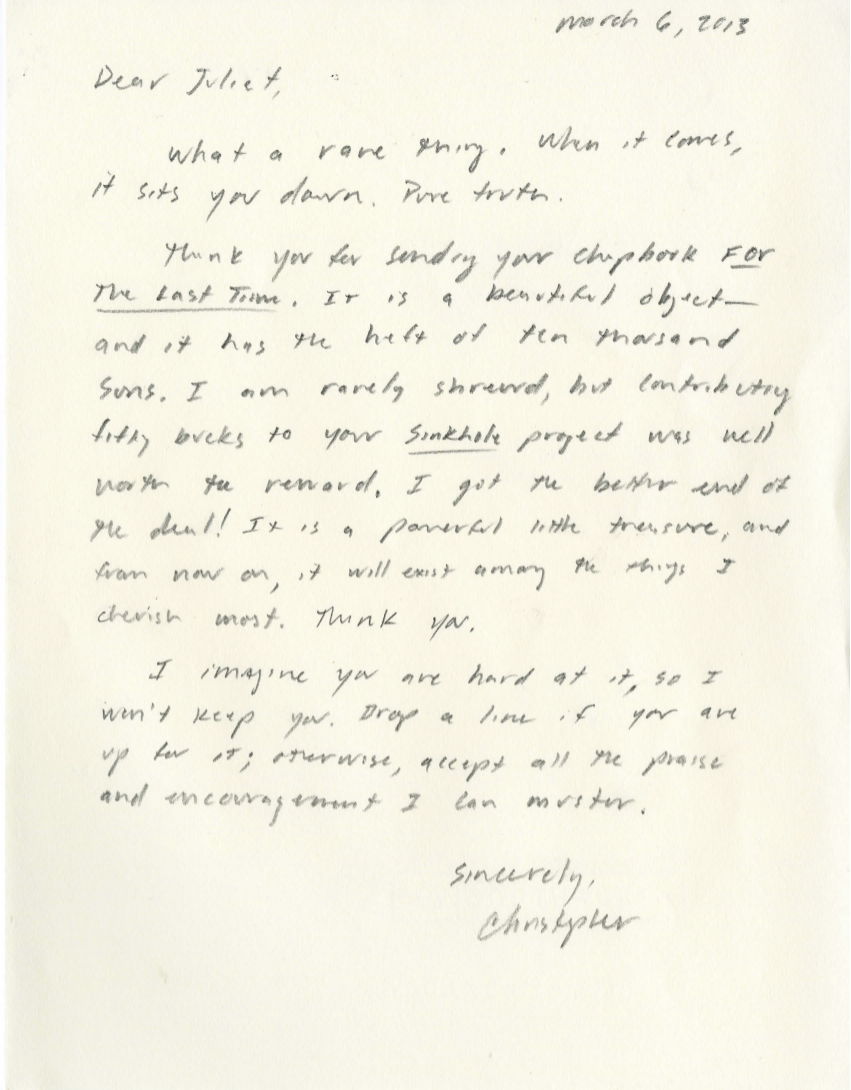 March 6, 2013
Dear Juliet,
What a rare thing. When it comes,
it sits you down. Pure truth.
Thank you for sending your chapbook For
The Last Time. It is a beautiful object—
and it has the heft of ten thousand
suns. I am rarely shrewd, but contributing
fifty bucks to your Sinkhole project was well
worth the reward. I got the better end of
the deal! It is a powerful little treasure, and
from now on, it will exist among the things I
cherish most. Thank you.
I imagine you are hard at it, so I
won't keep you. Drop a line if you are
up for it; otherwise, accept all the praise
and encouragement I can muster.
Sincerely,
Christopher